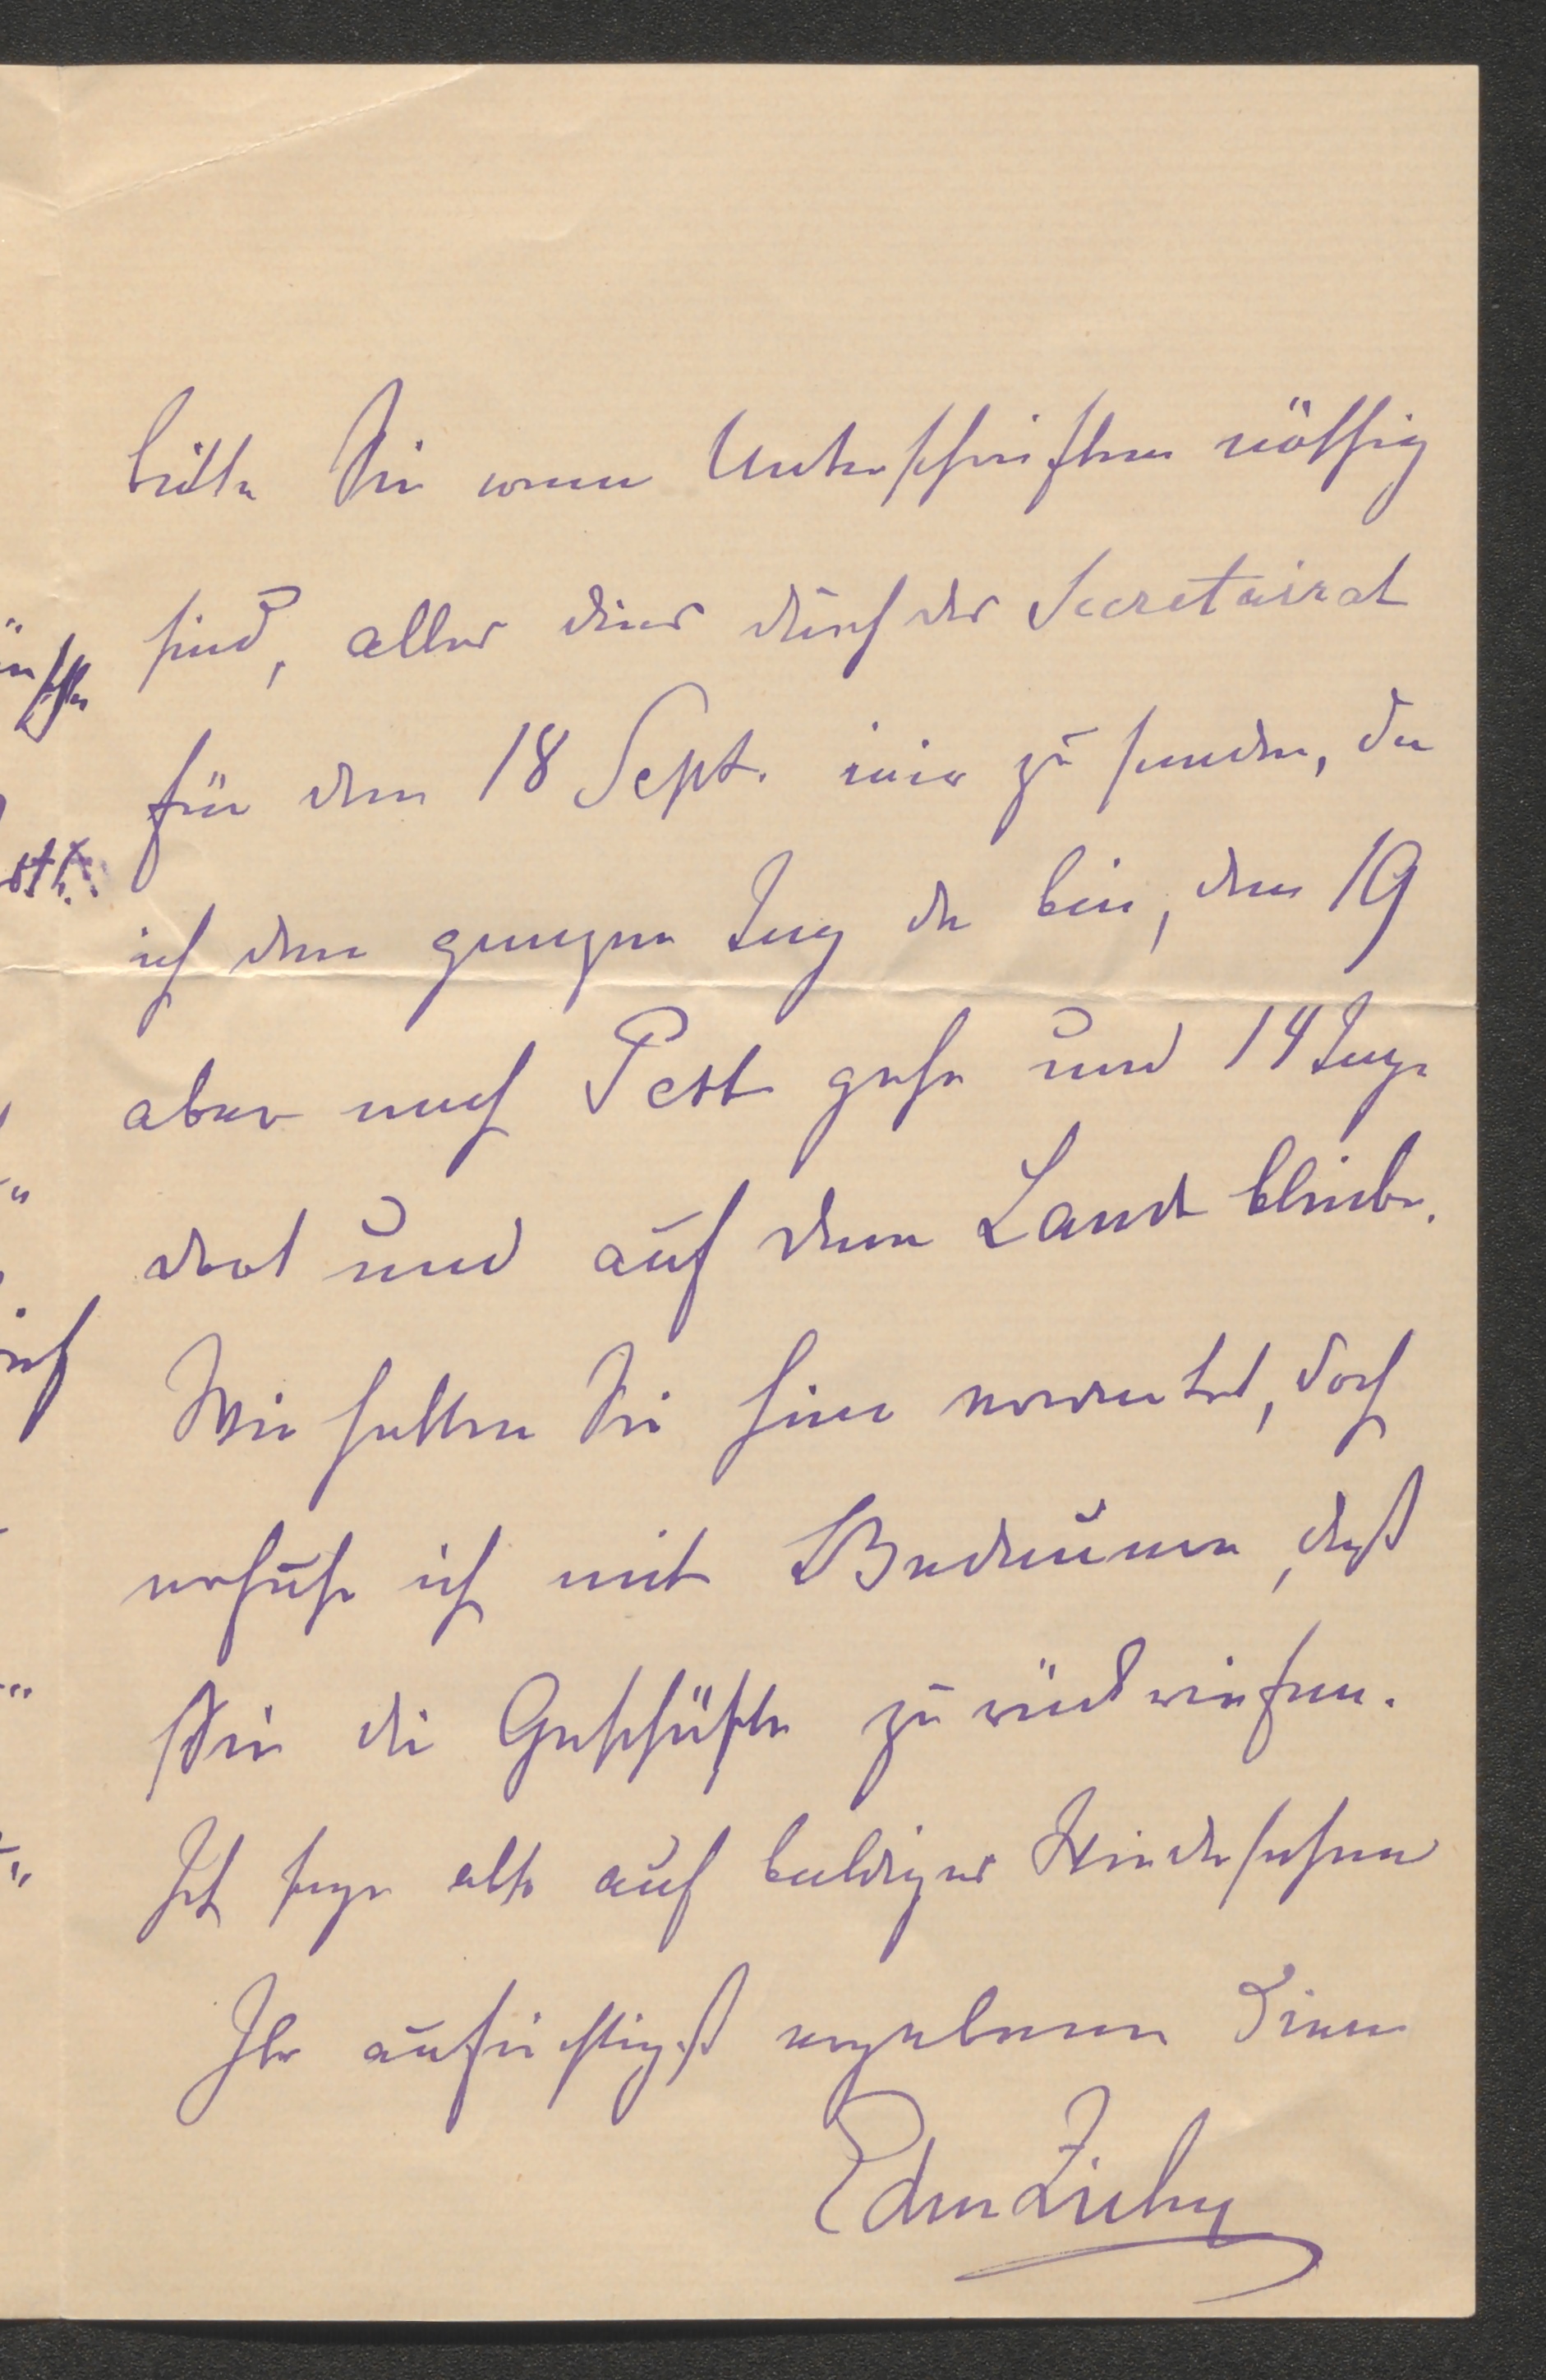 bitte Sie wenn Unterschriften nöthig
sind, alles dies durch das Secretairat
für den 18 Sept. mir zu senden, da
ich den ganzen Tag da bin, den 19
aber nach Pest gehe und 14 Tage
dort und auf dem Land bleibe.
Wir hatten Sie hier erwartet, doch
erfuhr ich mit Bedauern, daß
Sie die Geschäfte zurückriefen.
Ich sage also auf baldiges Wiedersehen
Ihr aufrichtigst ergebener Diener
Edm Zichy